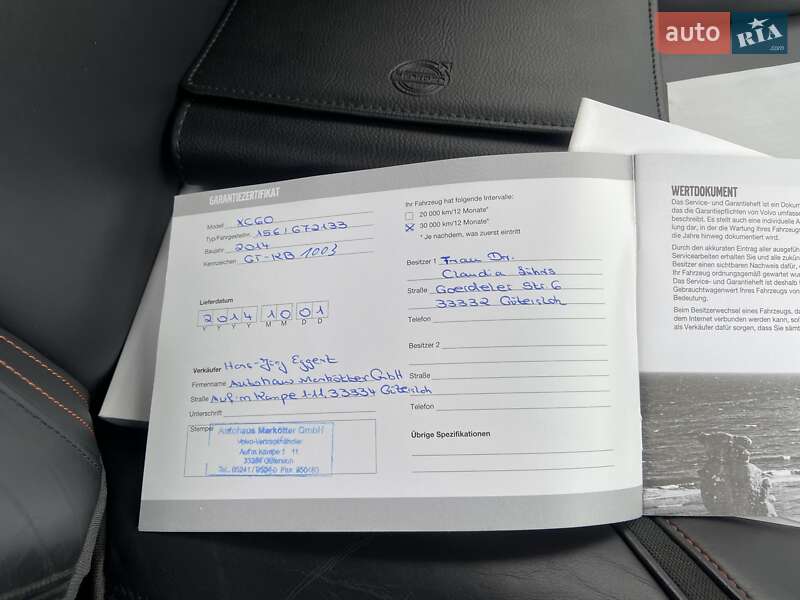 auto RIA .com
VOLVO
GARANTIEZERTIFIKAT
Modell XC60
Typ/Fahrgestellnr. 156/672133
Baujahr 2014
Kennzeichen GT-RB 1003
Lieferdatum
2014 10 01
Y Y Y Y M M D D
Verkäufer Hans-Jörg Eggert
Firmenname Autohaus Markötter GmbH
Straße Auf'm Kampe 1-11, 33334 Gütersloh
Unterschrift
Stempel
Autohaus Markötter GmbH
Volvo-Vertragshändler
Auf'm Kampe 1 11
Gütersloh
Ihr Fahrzeug hat folgende Intervalle:
20 000 km/12 Monate*
30 000 km/12 Monate*
* Je nachdem, was zuerst eintritt
Besitzer 1 Frau Dr.
Claudia
Straße Goerdeler Str. 6
33332 Gütersloh
Telefon
Besitzer 2
Straße
Telefon
Übrige Spezifikationen
WERTDOKUMENT
Das Service- und Garantieheft ist ein Dokum
das die Garantiepflichten von Volvo umfasse
beschreibt. Es stellt auch eine individuelle A
lung dar, in der die Wartung Ihres Fahrzeugs
die Jahre hinweg dokumentiert wird.
Durch den akkuraten Eintrag aller ausgeführ
Servicearbeiten erhalten Sie und alle zukünf
Besitzer einen sichtbaren Nachweis dafür, d
Ihr Fahrzeug ordnungsgemäß gewartet wurd
Das Service- und Garantieheft ist deshalb f
Gebrauchtwagenwert Ihres Fahrzeugs von
Bedeutung.
Beim Besitzerwechsel eines Fahrzeugs, da
dem Internet verbunden werden kann, sol
als Verkäufer dafür sorgen, dass Sie sämt